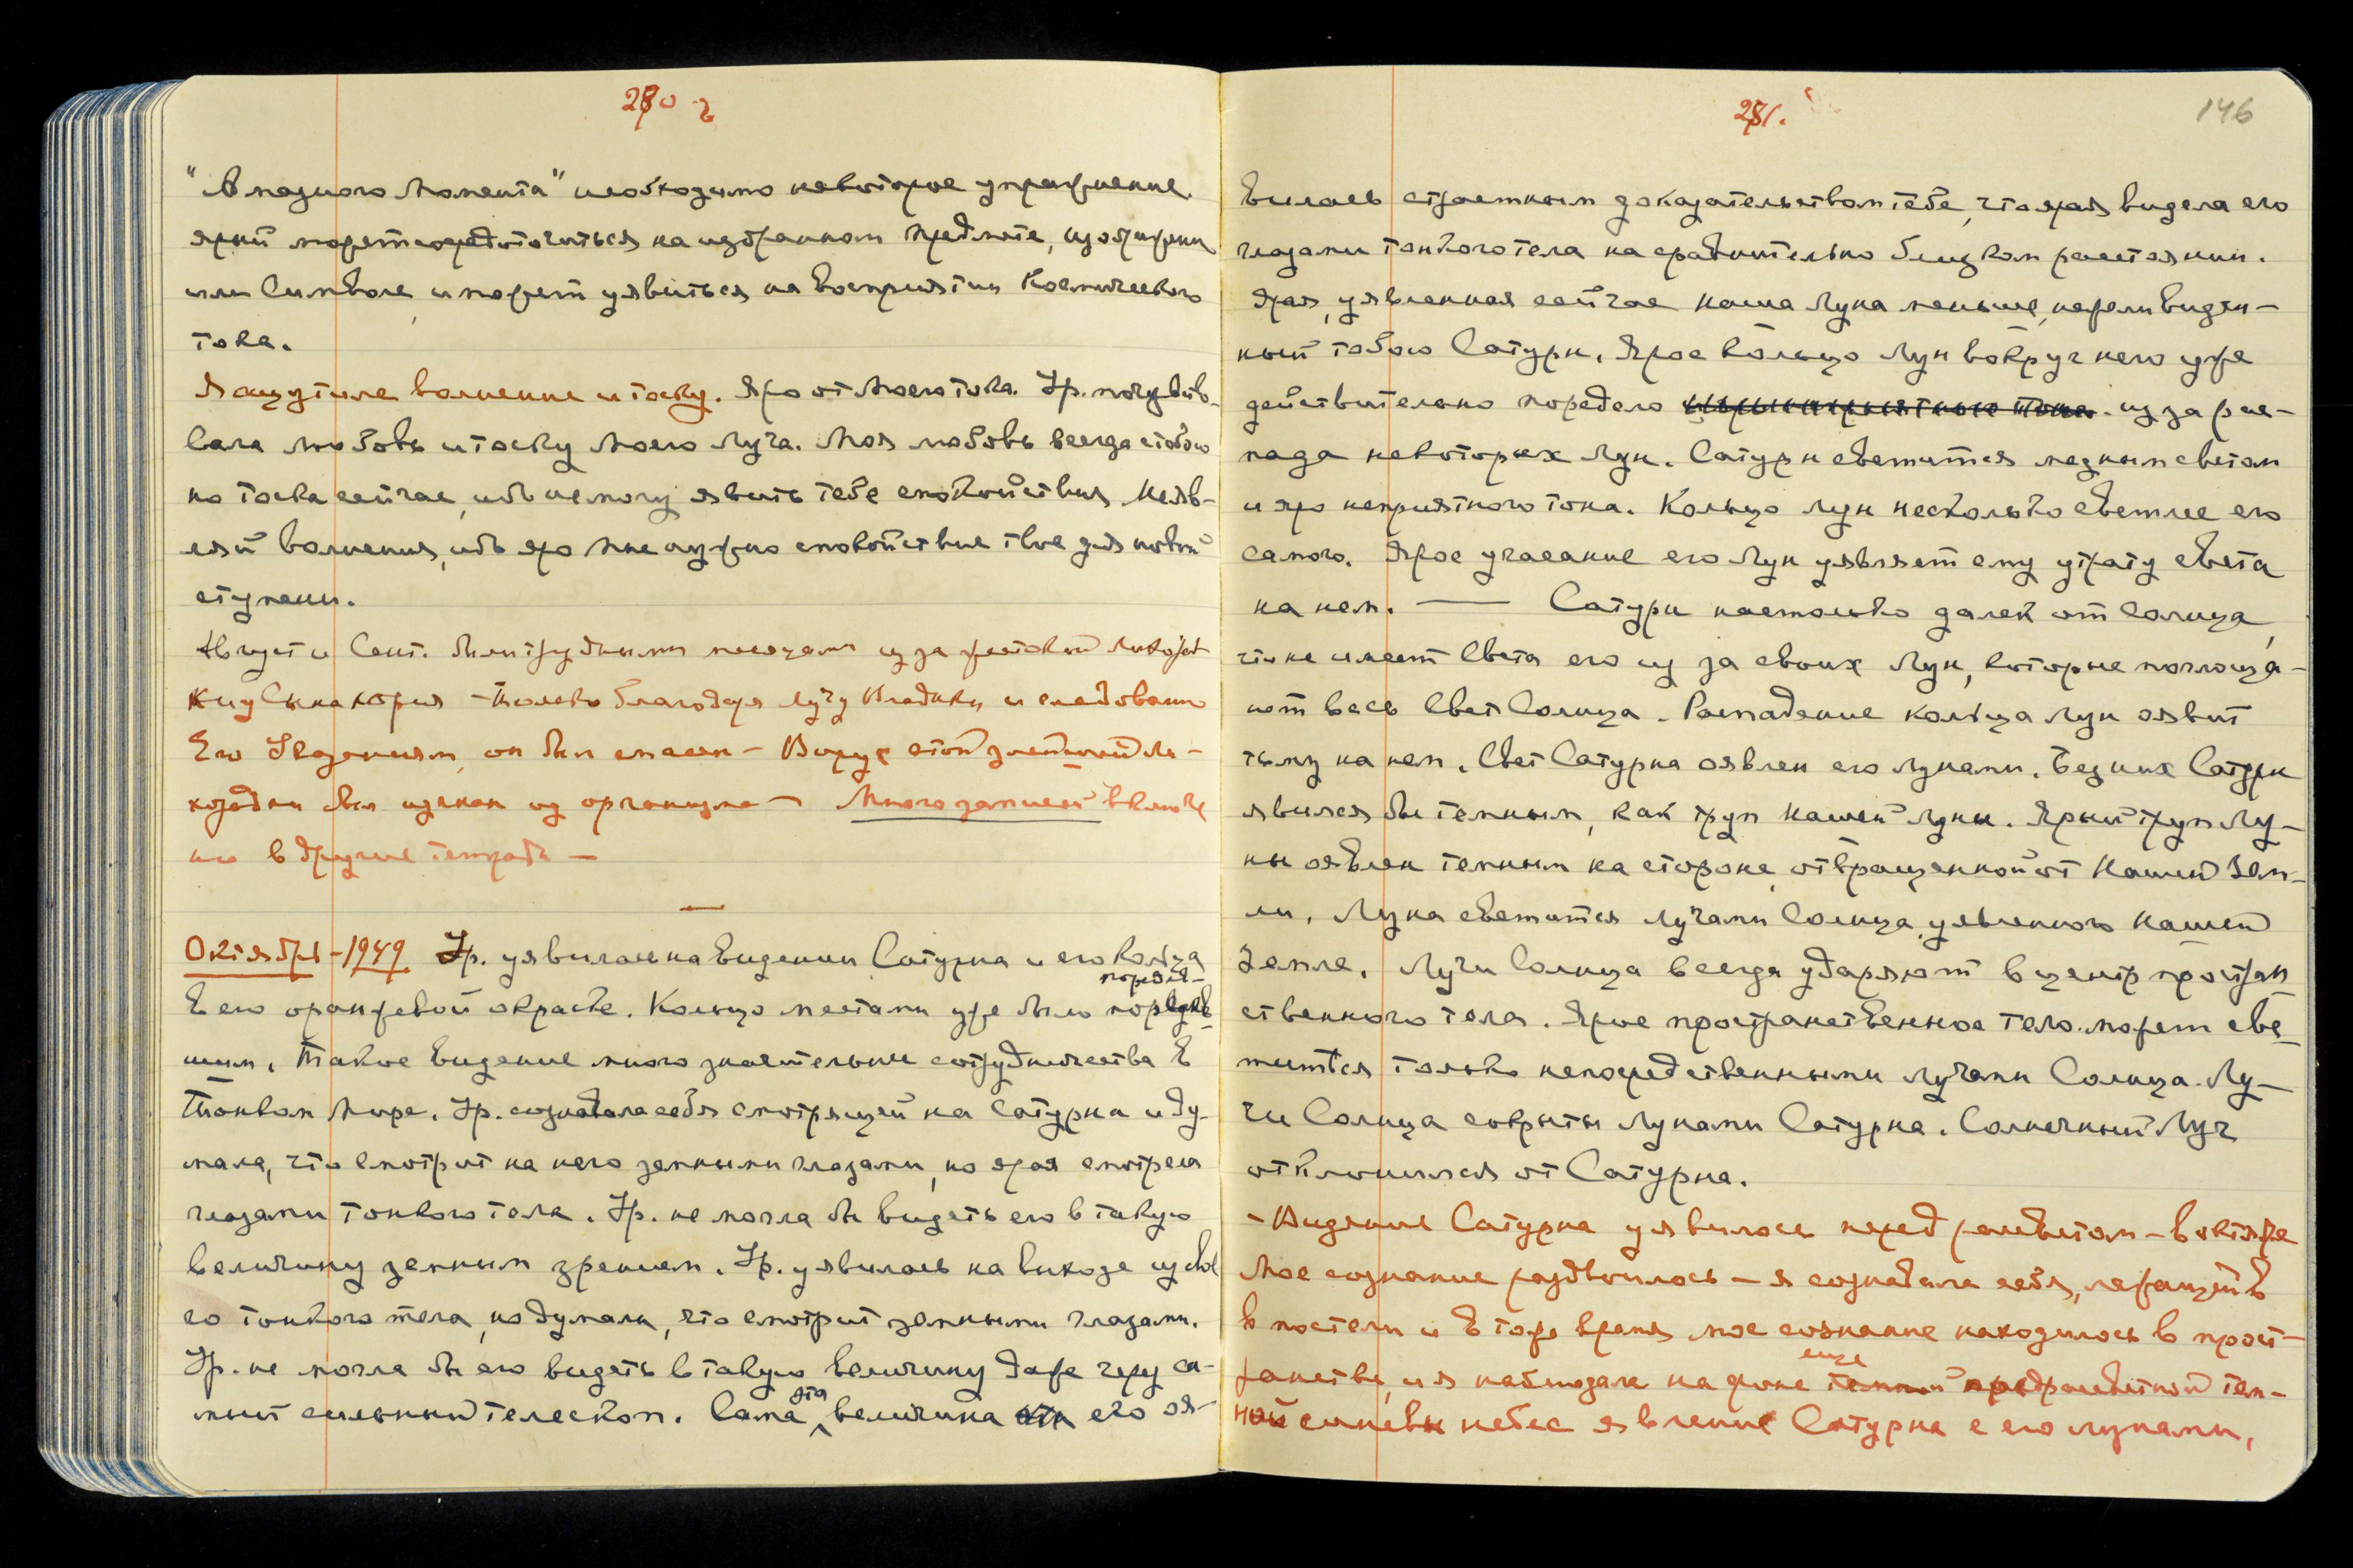 280 г
"Властного Момента" необходимо некоторое упражнение.
ярый может сосредоточиться на избранном предмете, изображении
или Символе, и может уявиться на восприятии Космического
тока.
Я ощутила волнение и тоску. Яро от Моего тока. Ур. почувство-
вала любовь и тоску Моего Луча. Моя любовь всегда с тобою
но тоска сейчас, ибо не могу явить тебе спокойствия. Не яв-
ляй волнения, ибо яро Мне нужно спокойствие твое для новой
ступени.
Август и Сент. были трудными месяцами из за жестокой лихорад
ки у Сына Юрия – только благодаря Лучу Владыки и следованию
Его Указаниям, он был спасен – Вирус этой злейшей ли-
хорадки был изгнан из организма – Много записей включе
но в другие тетради –
Октябрь – 1949 Ур. уявилась на видении Сатурна и его кольца
в его оранжевой окраске. Кольцо местами уже было поредев-
шим. Такое видение много значительнее сотрудничества в
Тонком Мире. Ур. сознавала себя смотрящей на Сатурна и ду-
мала, что смотрит на него земными глазами, но ярая смотрела
глазами тонкого тела. Ур. не могла бы видеть его в такую
величину земным зрением. Ур. уявилась на выходе из сво
его тонкого тела, но думала, что смотрит земными глазами.
Ур. не могла бы его видеть в такую величину даже через са-
мый сильный телескоп. Сама эта величина его яв-
281.
146
вилась страстным доказательством тебе, что ярая видела его
глазами тонкого тела на сравнительно близком расстоянии.
Ярая, уявленная сейчас наша Луна меньше, нежели виден-
ный тобою Сатурн. Ярое кольцо Лун вокруг него уже
действительно поредело из за рас-
пада некоторых Лун. Сатурн светится медным светом
и яро неприятного тона. Кольцо лун несколько светлее его
самого. Ярое угасание его Лун уявляет ему утрату света
на нем. — Сатурн настолько далек от Солнца,
что не имеет Света его из за своих Лун, которые поглоща-
ют весь Свет Солнца. Распадение кольца Лун оявит
тьму на нем. Свет Сатурна оявлен его лунами. Без них Сатурн
явился бы темным, как труп Нашей Луны. Ярый труп Лу-
ны оявлен темным на стороне, отвращенной от Нашей Зем-
ли. Луна светится лучами Солнца, уявленного Нашей
Земле. Лучи Солнца всегда ударяют в центр простран
ственного тела. Ярое пространственное тело может све-
титься только непосредственными лучами Солнца. Лу-
чи Солнца сокрыты Лунами Сатурна. Солнечный Луч
отклонился от Сатурна.
– Видение Сатурна уявилось перед рассветом – в октябре
Мое сознание раздвоилось – я сознавала себя, лежащей в
в постели и в тоже время мое сознание находилось в прост-
ранстве, и я наблюдала на фоне еще предрассветной тем-
ной синевы небес явление Сатурна с его лунами,